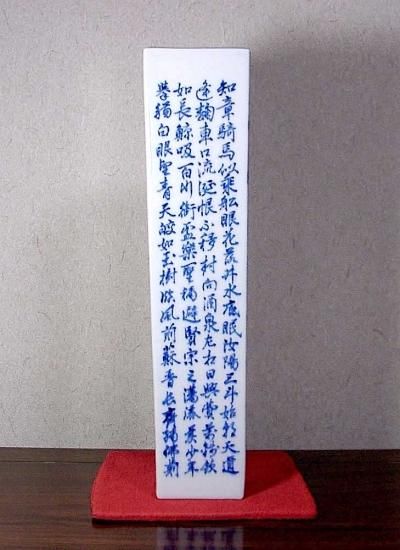 知章騎馬似乘舩眼花落井水底眠汝陽三斗始朝天道
逢麹車口流涎恨不移封向酒泉左相日興費萬錢飲
如長鯨吸百川銜盃樂聖稱避賢宗之瀟洒美少年
擧觴白眼望青天皎如玉樹臨風前蘇晉長齋繡佛前